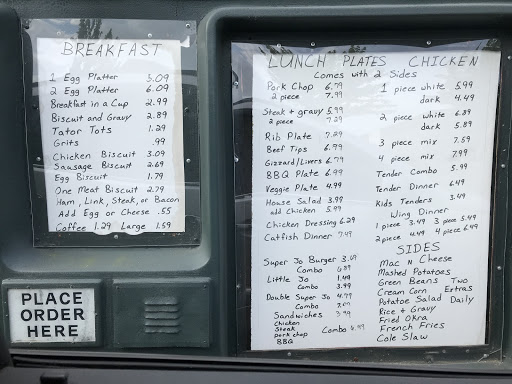 BREAKFAST
1 Egg Platter 5.09
2 Egg Platter 6.09
Breakfast in a Cup 2.99
Biscuit and Gravy 2.89
Tator Tots 1.29
Grits .99
Chicken Biscuit 3.09
Sausage Biscuit 2.69
Egg Biscuit 1.79
One Meat Biscuit 2.79
Ham, Link, Steak, or Bacon
Add Egg or Cheese .55
Coffee 1.29 Large 1.59
PLACE
ORDER
HERE
LUNCH PLATES CHICKEN
Comes with 2 Sides
Pork Chop 6.79
2 piece 7.99
Steak & gravy 5.99
2 piece 7.29
Rib Plate 7.29
Beef Tips 6.79
Gizzard/Livers 6.79
BBQ Plate 6.99
Veggie Plate 4.99
House Salad 3.99
add Chicken 5.99
Chicken Dressing 6.29
Catfish Dinner 7.49
Super Jo Burger 3.69
Combo 6.89
Little Jo 1.49
Combo 3.99
Double Super Jo 4.79
Combo
Sandwiches 3.99
Chicken
Steak
Pork chop Combo
BBQ
1 piece white 5.99
dark 4.49
2 piece white 6.89
dark 5.89
3 piece mix 7.59
4 piece mix 7.99
Tender Combo 5.99
Tender Dinner 6.49
Kids Tenders 3.49
Wing Dinner
1 piece 3.49 3 piece 5.49
2 piece 4.49 4 piece 6.49
SIDES
Mac N Cheese
Mashed Potatoes
Green Beans Two
Cream Corn Extras
Potatoe Salad Daily
Rice & Gravy
Fried Okra
French Fries
Cole Slaw